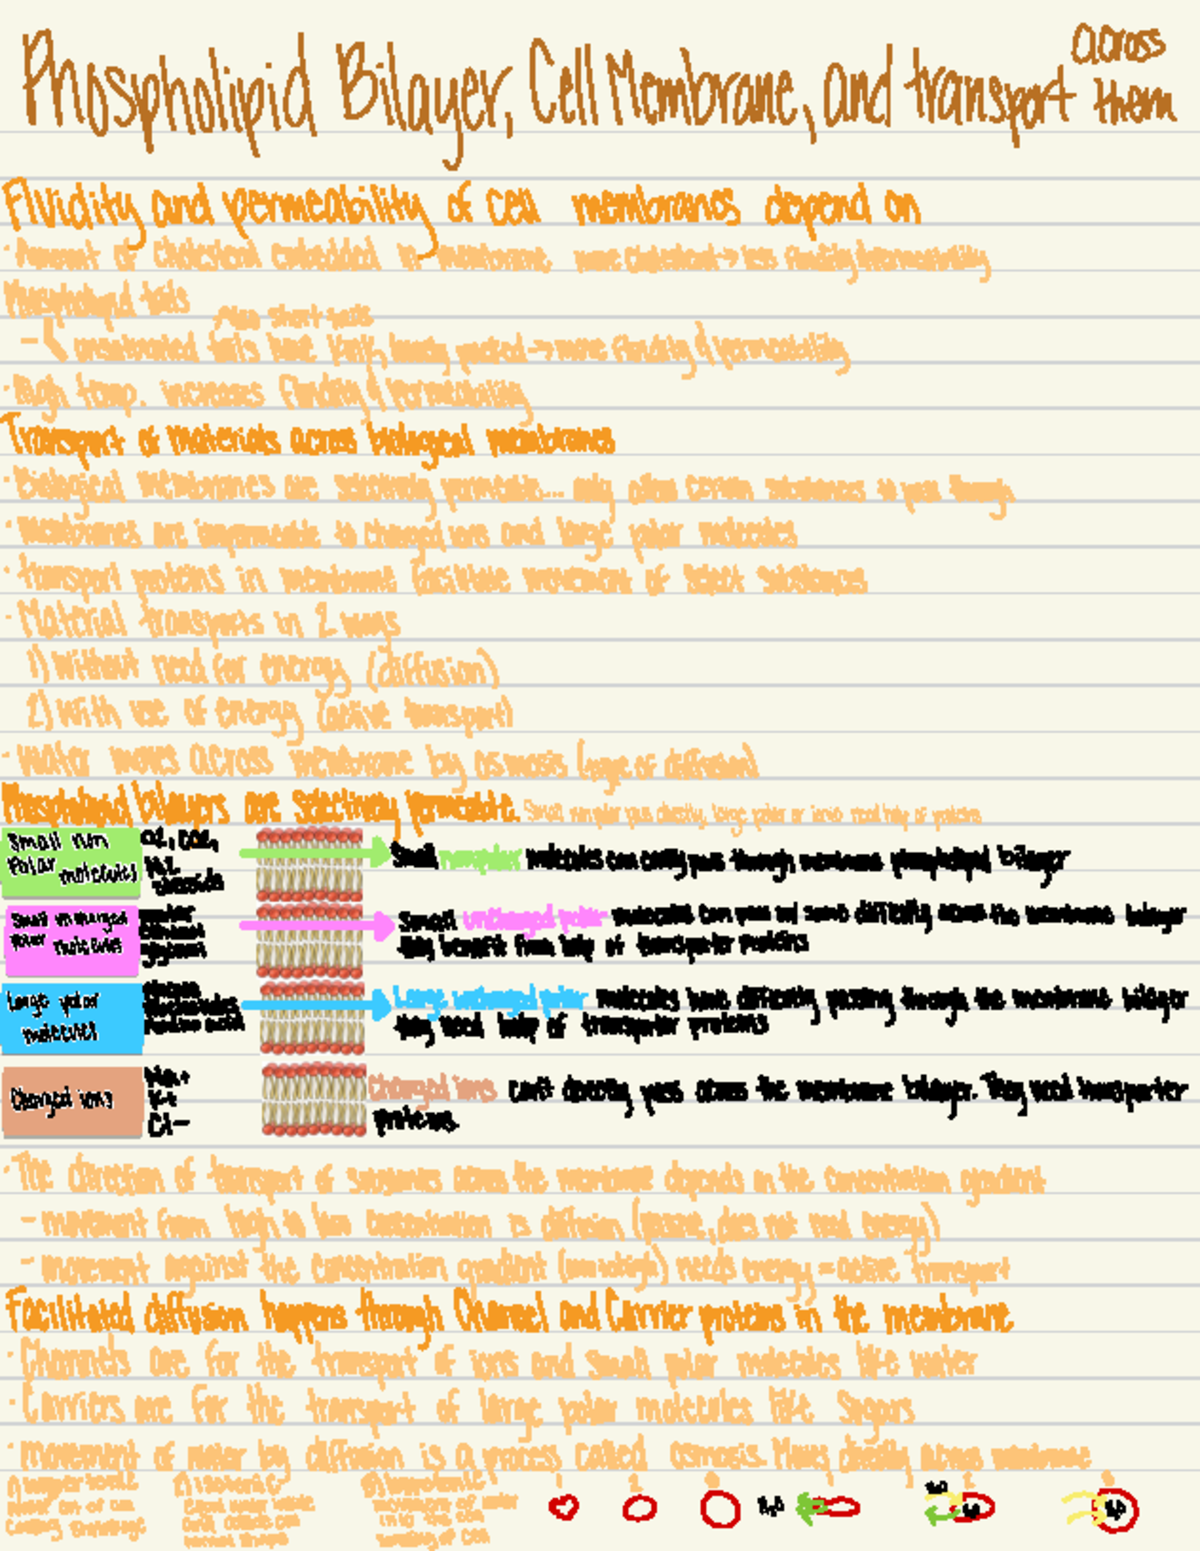 Phospholipid Bilayer, Cell Membrane, and transport across them
Fluidity and permeability of cell membranes depend on
· Amount of cholesterol embedded in membrane, more cholesterol → less fluidity/permeability
Phospholipid tails
Also short tails
- unsaturated tails have kink, loosely packed → more fluidity & permeability
· High temp. increases fluidity & permeability
Transport of materials across biological membranes
· Biological membranes are selectively permeable... only allow certain substances to pass through
· Membranes are impermeable to charged ions and large polar molecules
· transport proteins in membrane facilitate movement of select substances
· Material transports in 2 ways
1) Without need for energy (diffusion)
2) With use of energy (active transport)
· Water moves across membrane by osmosis (type of diffusion)
Phospholipid bilayers are selectively permeable. Small nonpolar pass directly, large polar or ions need help of proteins
Small non polar molecules
O2, CO2, N2, steroids
Small nonpolar molecules can easily pass through membrane phospholipid bilayer
Small uncharged polar molecules
water ethanol glycerol
Small uncharged polar molecules can pass w/ some difficulty across the membrane bilayer
they benefit from help of transporter proteins
Large polar molecules
Amino acids
Large uncharged polar molecules have difficulty passing through the membrane bilayer
they need help of transporter proteins
Charged ions
Na+
K+
Cl-
Charged ions can't directly pass across the membrane bilayer. They need transporter
proteins.
· The direction of transport of across the membrane depends on the concentration gradient
- movement from high to low concentration is diffusion (passive, does not need energy)
- movement against the concentration gradient (low to high) needs energy = active transport
Facilitated diffusion happens through Channel and Carrier proteins in the membrane
· Channels are for the transport of ions and small polar molecules like water
· Carriers are for the transport of large polar molecules like sugars
· movement of water by diffusion is a process called osmosis. Moves directly across membrane
1) Hypertonic
out of cell
causing shrinkage
2) Isotonic
Equal water inside
3) Hypotonic
movement of water
into the cell
swelling of cell
1 2 3 1 2 3
H2O
H2O
H2O